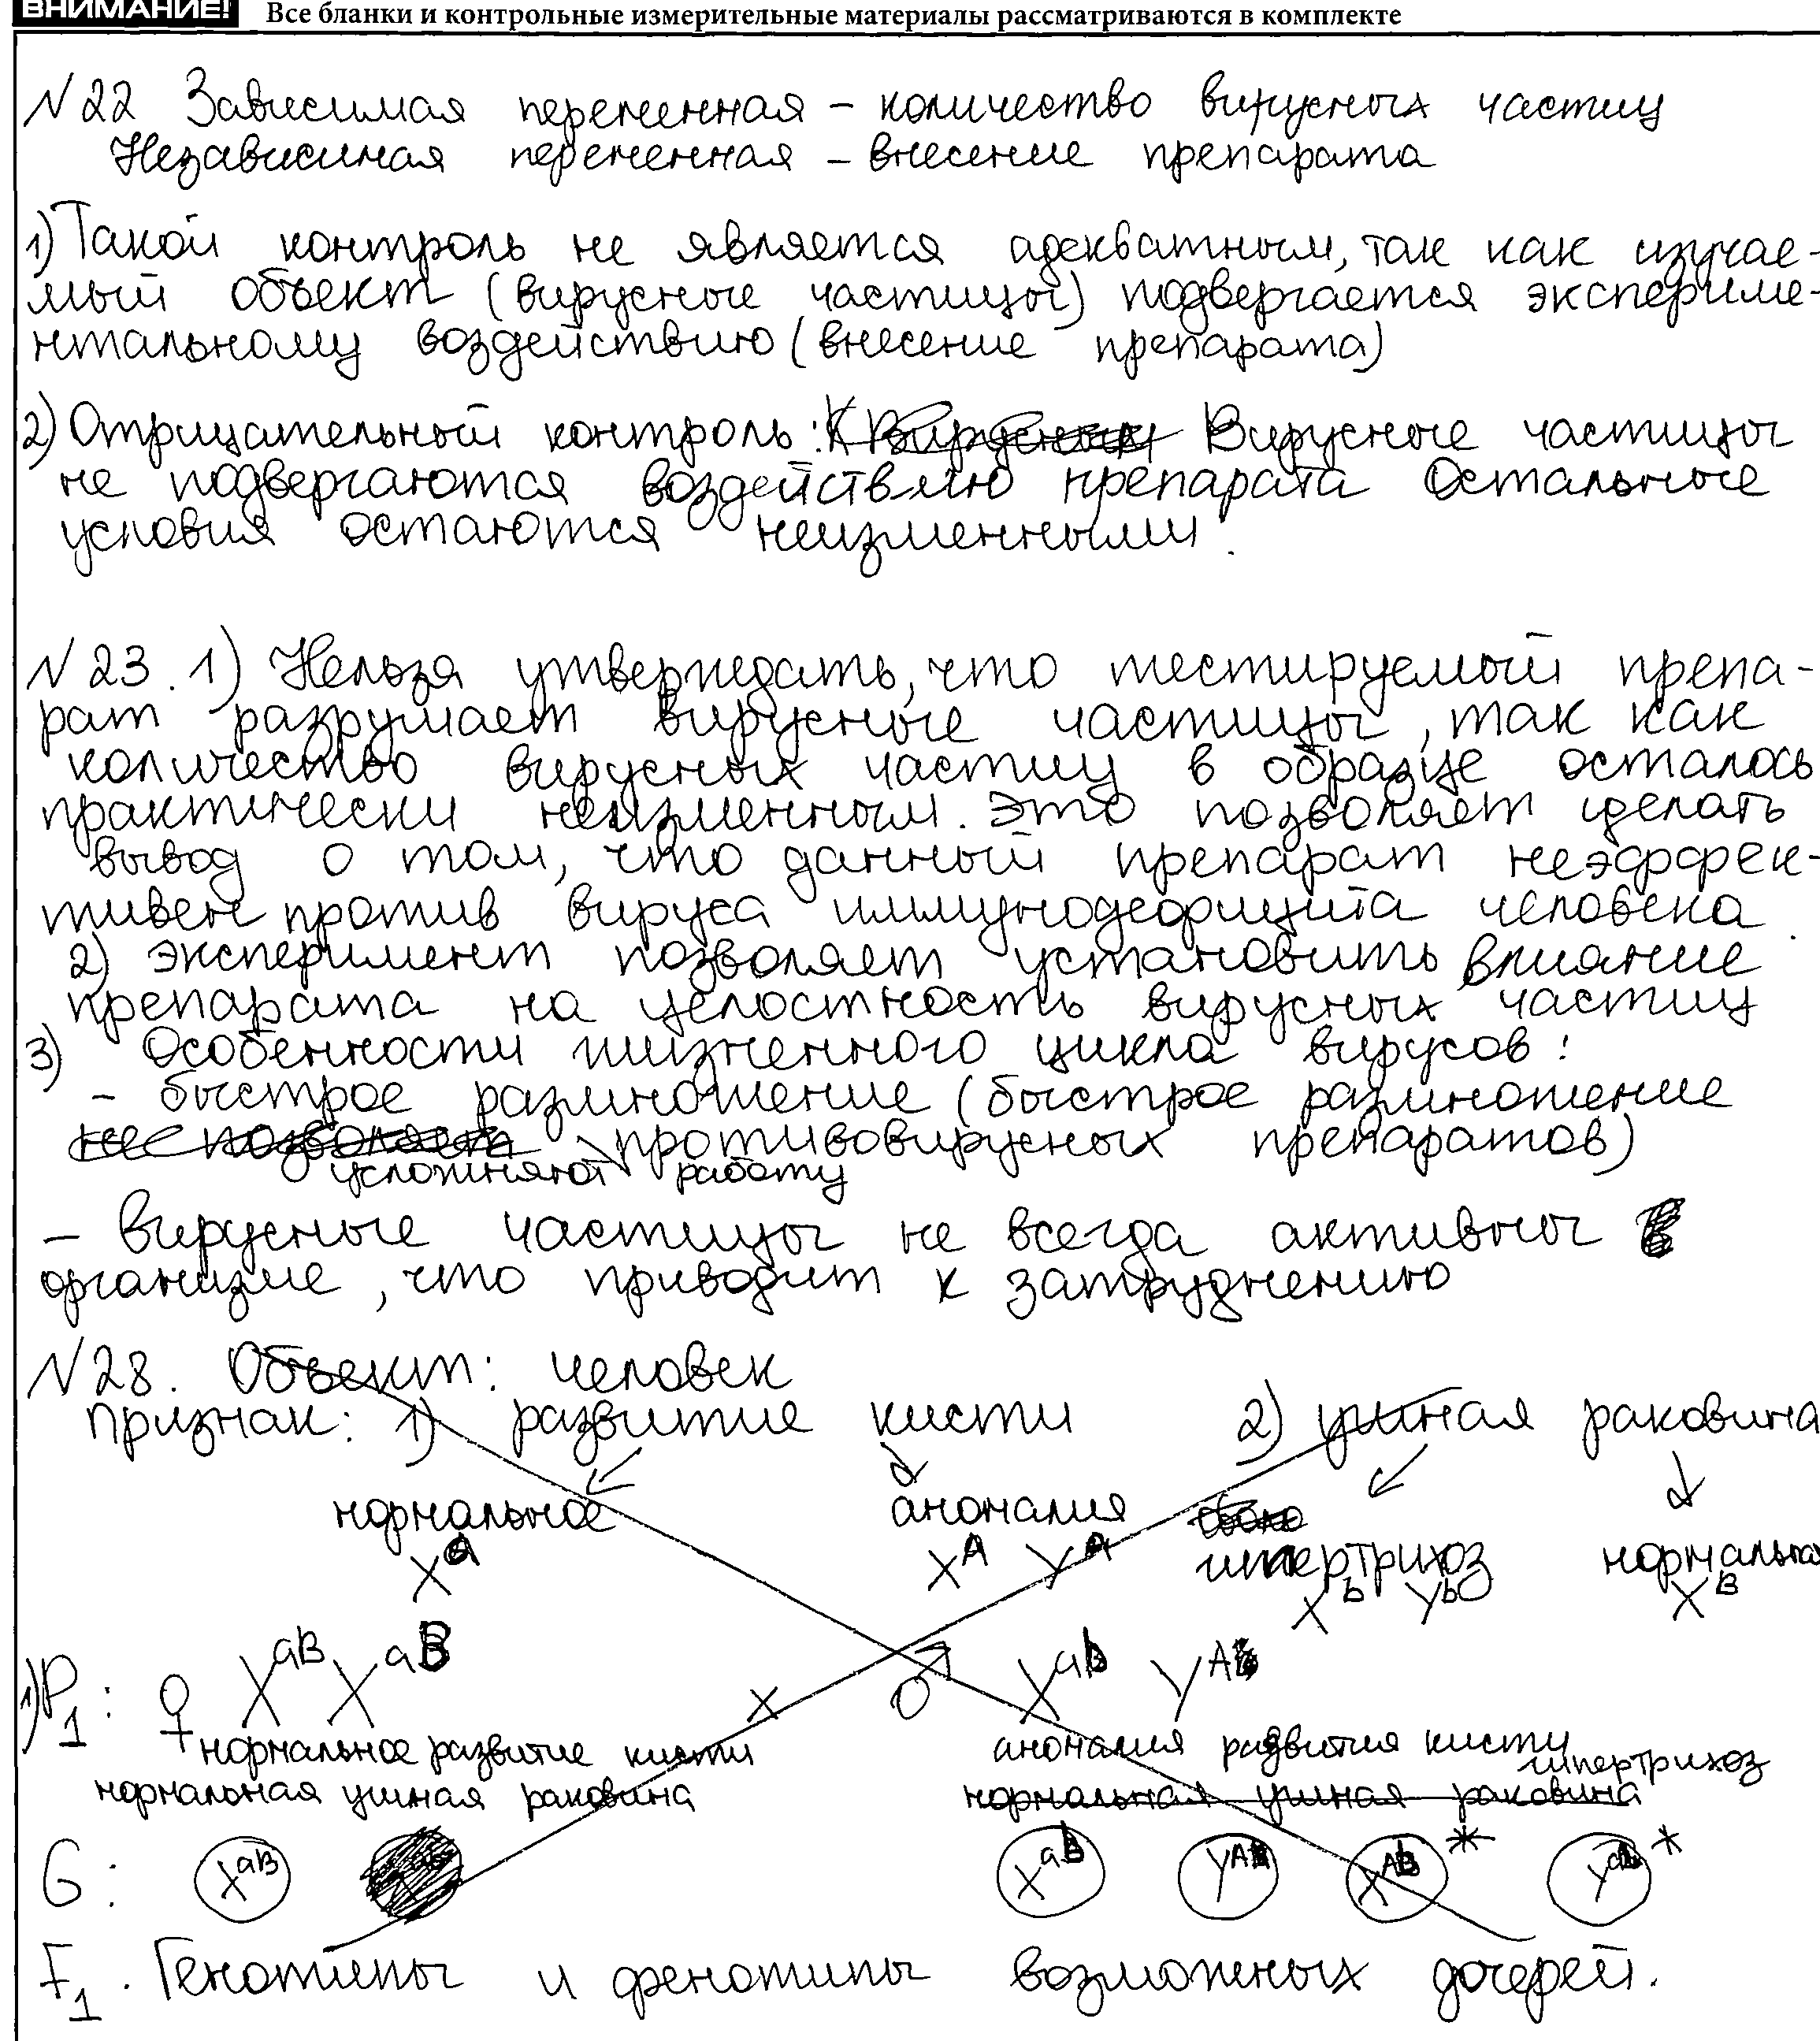 ВНИМАНИЕ! Все бланки и контрольные измерительные материалы рассматриваются в комплекте
N 22 Зависимая переменная – количество вирусных частиц
Независимая переменная – внесение препарата
1) Такой контроль не является адекватным, так как изучае-
мый объект (вирусные частицы) подвергается экспериме-
нтальному воздействию (внесение препарата)
2) Отрицательный контроль: Вирусные частицы
не подвергаются воздействию препарата Остальные
условия остаются неизменными.
N 23. 1) Нельзя утверждать, что тестируемый препа-
рат разрушает вирусные частицы, так как
количество вирусных частиц в образце осталось
практически неизменным. Это позволяет сделать
вывод о том, что данный препарат неэффек-
тивен против вируса иммунодефицита человека.
2) эксперимент позволяет установить влияние
препарата на целостность вирусных частиц
3) Особенности жизненного цикла вирусов:
– быстрое размножение (быстрое размножение
не позволяет противовирусных препаратов)
усложняют работу
– вирусные частицы не всегда активны в
организме, что приводит к затруднению
N 28. Объект: человек
признак: 1) развитие кисти 2) ушная раковина
нормальное аномалия гипертрихоз нормальная
X^a X^A Y^A X^b Y^b X^B
1) P1: ♀ X^aB X^aB × ♂ X^ab Y^Ab
нормальное развитие кисти аномалия развития кисти гипертрихоз
нормальная ушная раковина нормальная ушная раковина
G: X^aB X^ab Y^Ab X^Ab * Y^ab *
F1. Генотипы и фенотипы возможных дочерей.